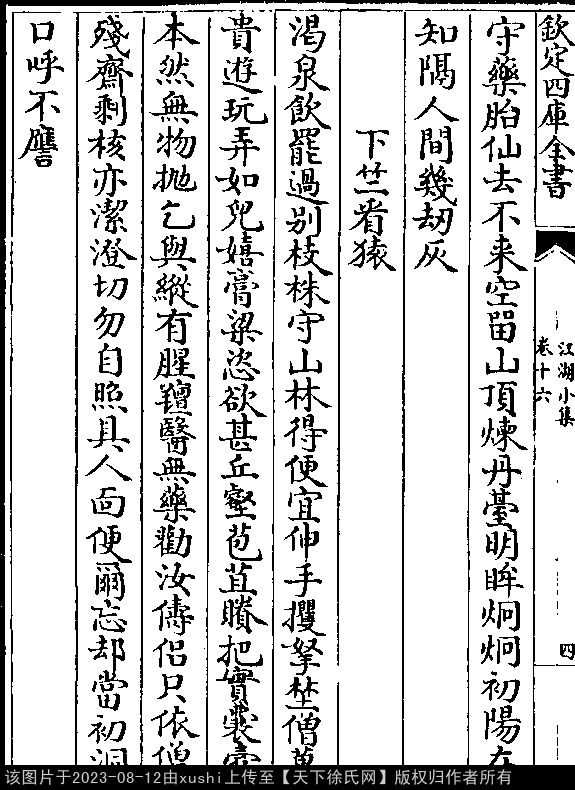 欽定四庫全書
江湖小集
卷十六
四
守藥胎仙去不来空留山頂煉丹臺明眸炯炯初陽
知隔人間幾劫灰
下竺看猿
渴泉飲罷過别枝株守山林得便宜伸手攫拏坐僧
貴遊玩弄如兒嬉膏粱恣欲甚丘壑苞苴賸把實裹
本然無物抛乞與縱有腥羶醫無藥勸汝儔侣只依僧
殘齋剩核亦潔澄切勿自照具人面便爾忘却當初洞
口呼不譍
该图片于2023-08-12由xushi上传至【天下徐氏网】版权归作者所有